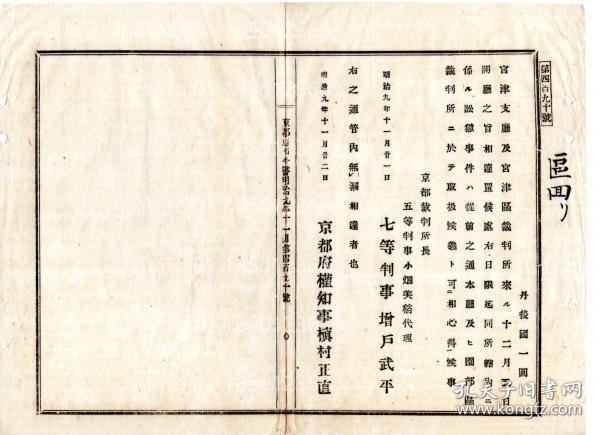 第四百九十號
區回リ
丹後國一圓
宮津支廳及宮津區裁判所來ル十二月 日
開廳之旨相達置候處右日限迄同所轄內ニ
係ル訟獄事件ハ從前之通本廳及ヒ園部區
裁判所ニ於テ取扱候義ト可相心得候事
京都裁判所長
五等判事小畑美稻代理
明治九年十一月廿一日
七等判事增戶武平
右之通管內無漏相達者也
明治九年十一月廿二日
京都府權知事槇村正直
京都府 明治九年十一月第四百九十號
孔夫子旧书网
www.kongfz.com